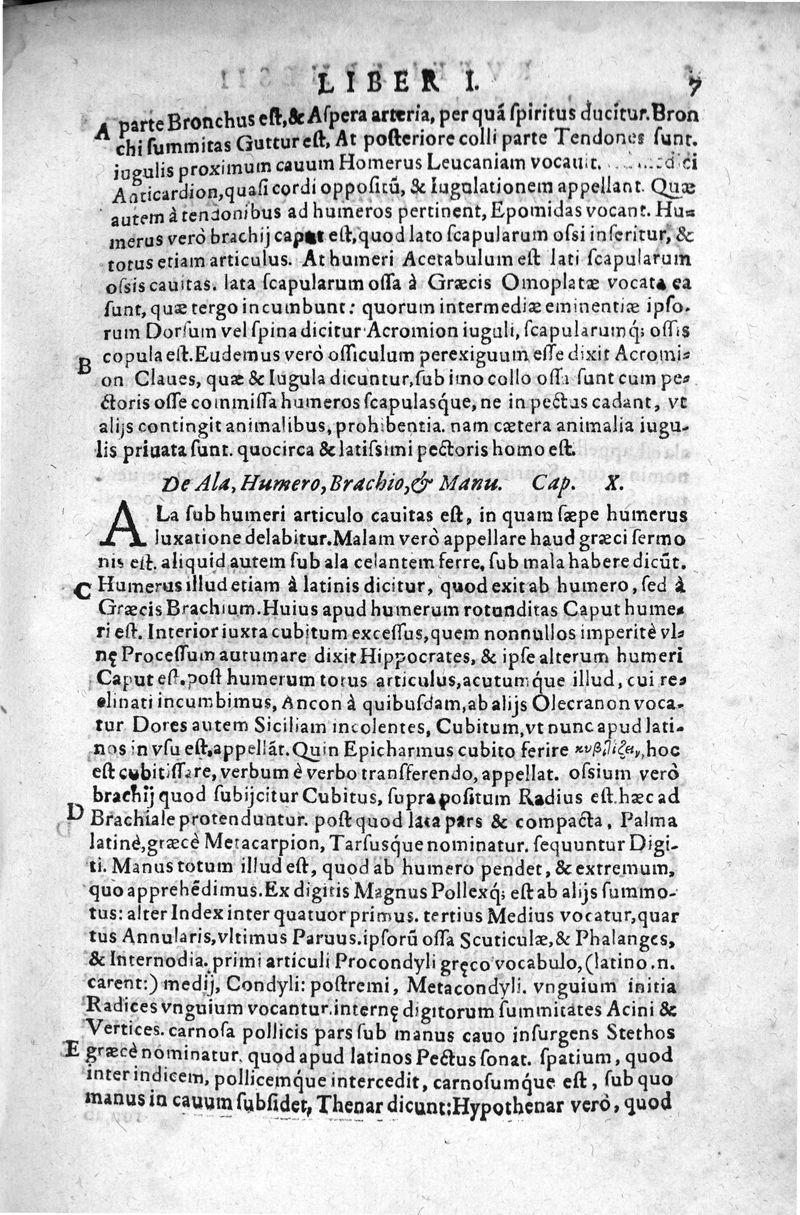 LIBER I. 7
A parte Bronchus eſt,& Aſpera arteria, per quã ſpiritus ducitur. Bron
chi ſummitas Guttur eſt, At poſteriore colli parte Tendones ſunt.
iugulis proximum cauum Homerus Leucaniam vocauit.
Anticardion, quaſi cordi oppoſitũ, & Iugulationem appellant. Quæ
autem à tendonibus ad humeros pertinent, Epomidas vocant. Hu-
merus verò brachij caput eſt, quod lato ſcapularum oſſi inſeritur, &
totus etiam articulus. At humeri Acetabulum eſt lati ſcapularum
oſsis cauitas. lata ſcapularum oſſa à Græcis Omoplatæ vocata ea
ſunt, quæ tergo incumbunt: quorum intermediæ eminentiæ ipſo-
rum Dorſum vel ſpina dicitur Acromion iuguli, ſcapularumq́; oſſis
B copula eſt. Eudemus verò oſſiculum perexiguum eſſe dixit Acromi-
on Claues, quæ & Iugula dicuntur, ſub imo collo oſſa ſunt cum pe-
ctoris oſſe commiſſa humeros ſcapulasque, ne in pectus cadant, vt
alijs contingit animalibus, prohibentia. nam cætera animalia iugu-
lis priuata ſunt. quocirca & latiſsimi pectoris homo eſt.
De Ala, Humero, Brachio, & Manu. Cap. X.
ALa ſub humeri articulo cauitas eſt, in quam ſæpe humerus
luxatione delabitur. Malam verò appellare haud græci ſermo
nis eſt. aliquid autem ſub ala celantem ferre, ſub mala habere dicũt.
C Humerus illud etiam à latinis dicitur, quod exit ab humero, ſed à
Græcis Brachium. Huius apud humerum rotunditas Caput hume-
ri eſt. Interior iuxta cubitum exceſſus, quem nonnullos imperitè vl-
nę Proceſſum autumare dixit Hippocrates, & ipſe alterum humeri
Caput eſt. poſt humerum totus articulus, acutumq́ue illud, cui re-
clinati incumbimus, Ancon à quibuſdam, ab alijs Olecranon voca-
tur Dores autem Siciliam incolentes, Cubitum, vt nunc apud lati-
nos in vſu eſt, appellãt. Quin Epicharmus cubito ferire κυβιτίζειν, hoc
eſt cubitiſſare, verbum è verbo transferendo, appellat. oſsium verò
brachij quod ſubijcitur Cubitus, ſuprapoſitum Radius eſt. hæc ad
D Brachiale protenduntur. poſt quod lata pars & compacta, Palma
latinè, græcè Metacarpion, Tarſusq́ue nominatur. ſequuntur Digi-
ti. Manus totum illud eſt, quod ab humero pendet, & extremum,
quo apprehẽdimus. Ex digitis Magnus Pollexq́; eſt ab alijs ſummo-
tus: alter Index inter quatuor primus. tertius Medius vocatur, quar
tus Annularis, vltimus Paruus. ipſorũ oſſa Scuticulæ, & Phalanges,
& Internodia. primi articuli Procondyli gręco vocabulo, (latino .n.
carent:) medij, Condyli: poſtremi, Metacondyli. vnguium initia
Radices vnguium vocantur. internę digitorum ſummitates Acini &
Vertices. carnoſa pollicis pars ſub manus cauo inſurgens Stethos
E græcè nominatur. quod apud latinos Pectus ſonat. ſpatium, quod
inter indicem, pollicemq́ue intercedit, carnoſumq́ue eſt, ſub quo
manus in cauum ſubſidet, Thenar dicunt: Hypothenar verò, quod